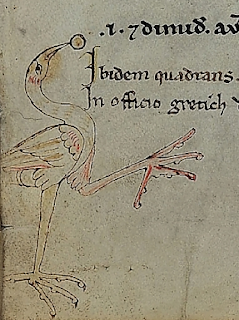 .i. ⁊ dimid̄. av̄
Ibidem quadrans.
In officio gretich